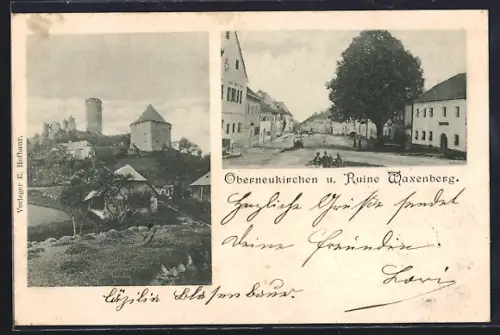 Verleger E. Hofbaur.
Oberneukirchen u. Ruine Waxenberg.
Herzliche Grüße sendet
Deine Freundin
Cäzilia Blasenbaur.